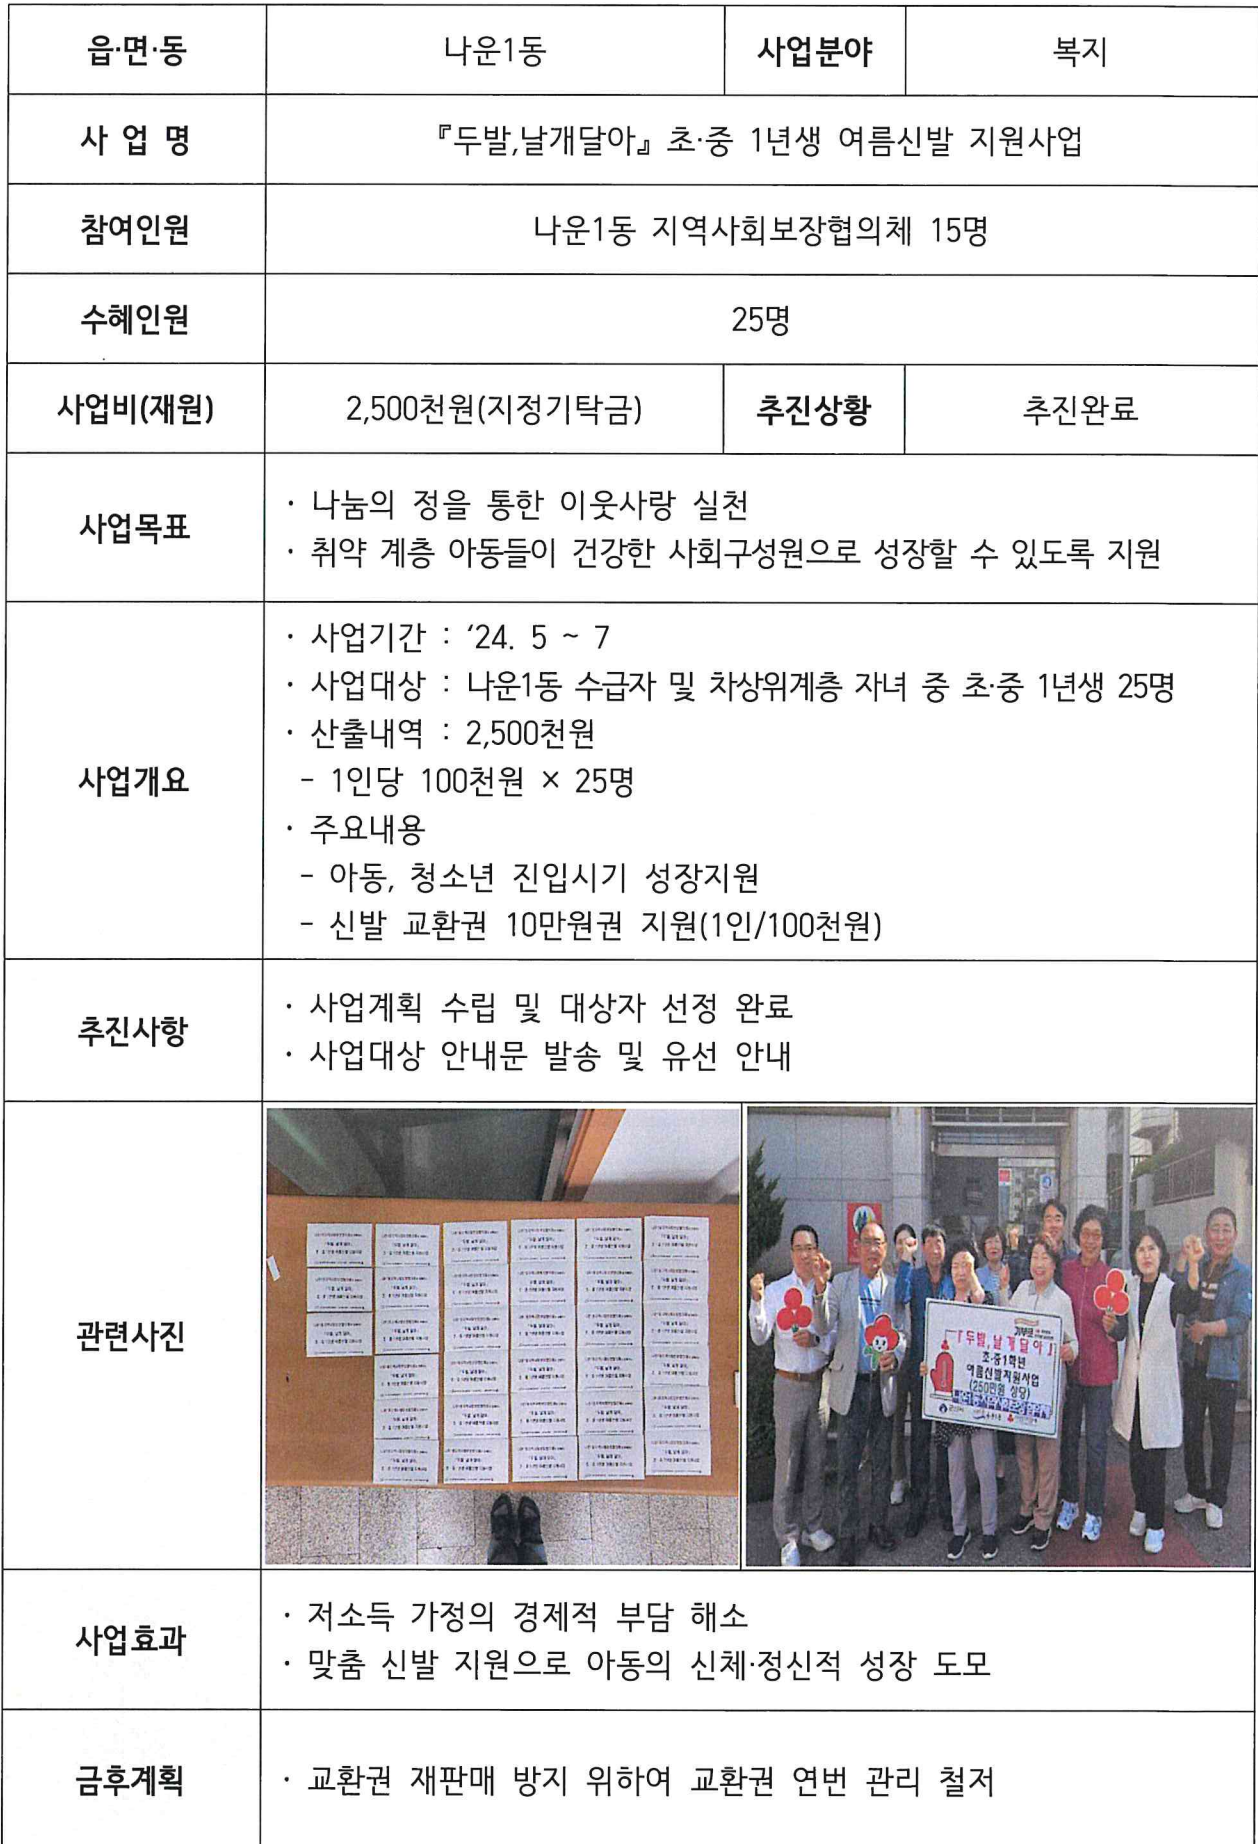 읍·면·동 나운1동 사업분야 복지
사 업 명 『두발,날개달아』 초·중 1년생 여름신발 지원사업
참여인원 나운1동 지역사회보장협의체 15명
수혜인원 25명
사업비(재원) 2,500천원(지정기탁금) 추진상황 추진완료
사업목표
· 나눔의 정을 통한 이웃사랑 실천
· 취약 계층 아동들이 건강한 사회구성원으로 성장할 수 있도록 지원
사업개요
· 사업기간 : ‘24. 5 ~ 7
· 사업대상 : 나운1동 수급자 및 차상위계층 자녀 중 초·중 1년생 25명
· 산출내역 : 2,500천원
- 1인당 100천원 × 25명
· 주요내용
- 아동, 청소년 진입시기 성장지원
- 신발 교환권 10만원권 지원(1인/100천원)
추진사항
· 사업계획 수립 및 대상자 선정 완료
· 사업대상 안내문 발송 및 유선 안내
관련사진
『두발,날개달아』
초·중1학년
여름신발지원사업
(250만원 상당)
사업효과
· 저소득 가정의 경제적 부담 해소
· 맞춤 신발 지원으로 아동의 신체·정신적 성장 도모
금후계획
· 교환권 재판매 방지 위하여 교환권 연번 관리 철저